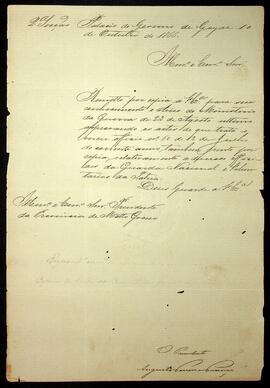 Palacio do Governo de Goyaz 10
de Outubro de 1866.
Illmo. e Exmo. Snr.
Remetto por copia a V. Exa. para seu
conhecimento o Aviso do Ministerio
da Guerra de 22 de Agosto ultimo
approvando os actos de que trata
meu officio nº de de Junho
do corrente anno, tambem junto por
copia, relativamente a officiaes
da Guarda Nacional e Volun-
tarios da Patria.
Deus Guarde a V. Exa.
Illmo. e Exmo. Snr. Presidente
da Provincia de Matto Grosso
O Presidente
Augusto